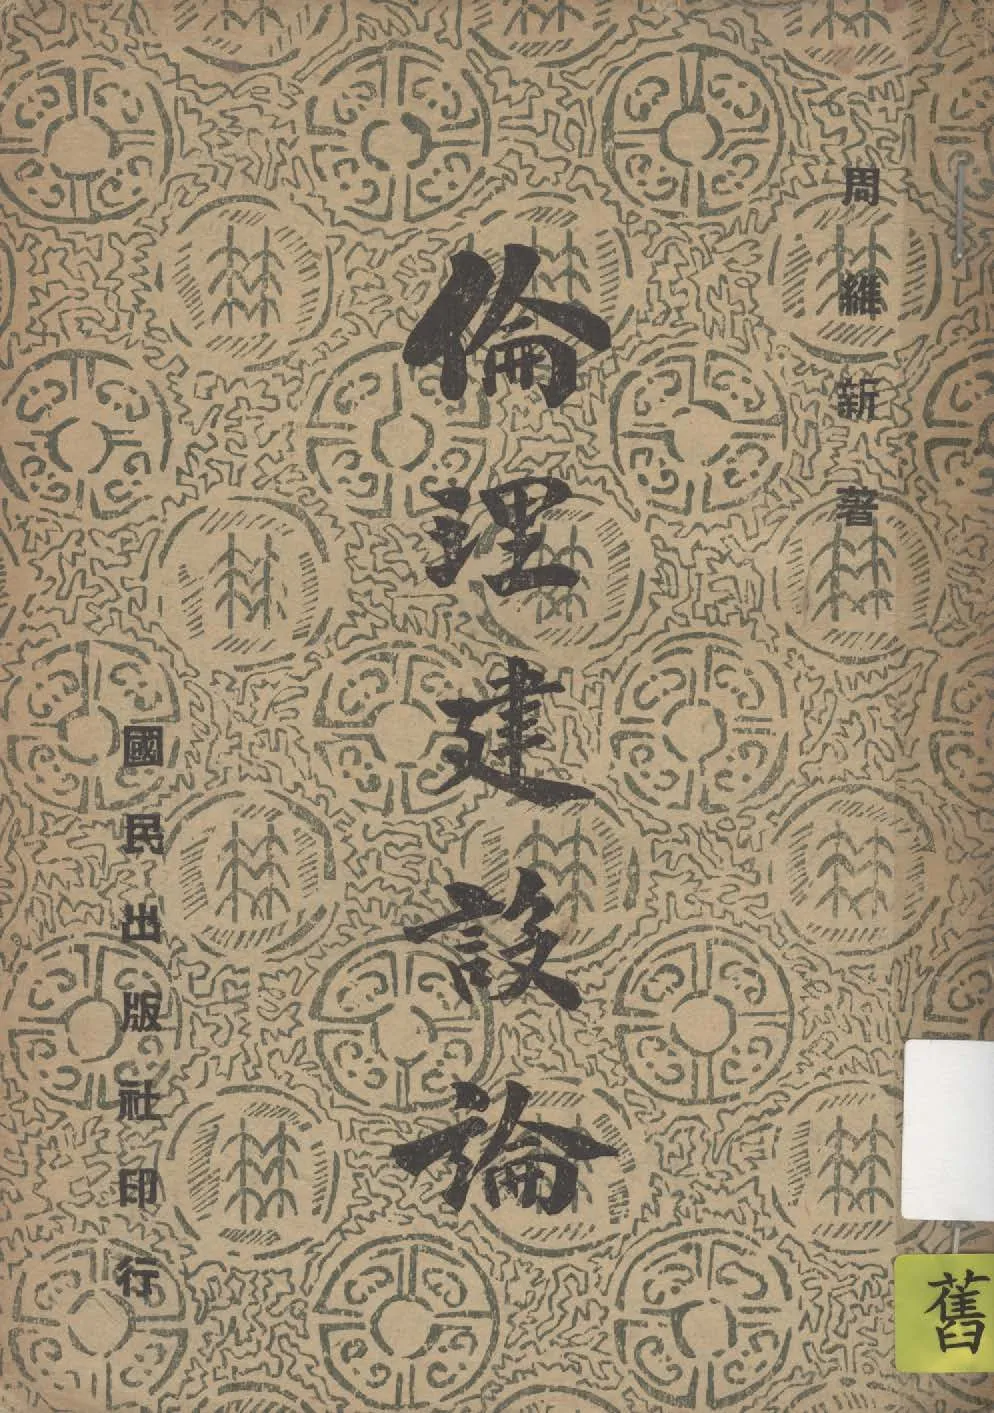 周維新著
倫理建設論
國民出版社印行
舊